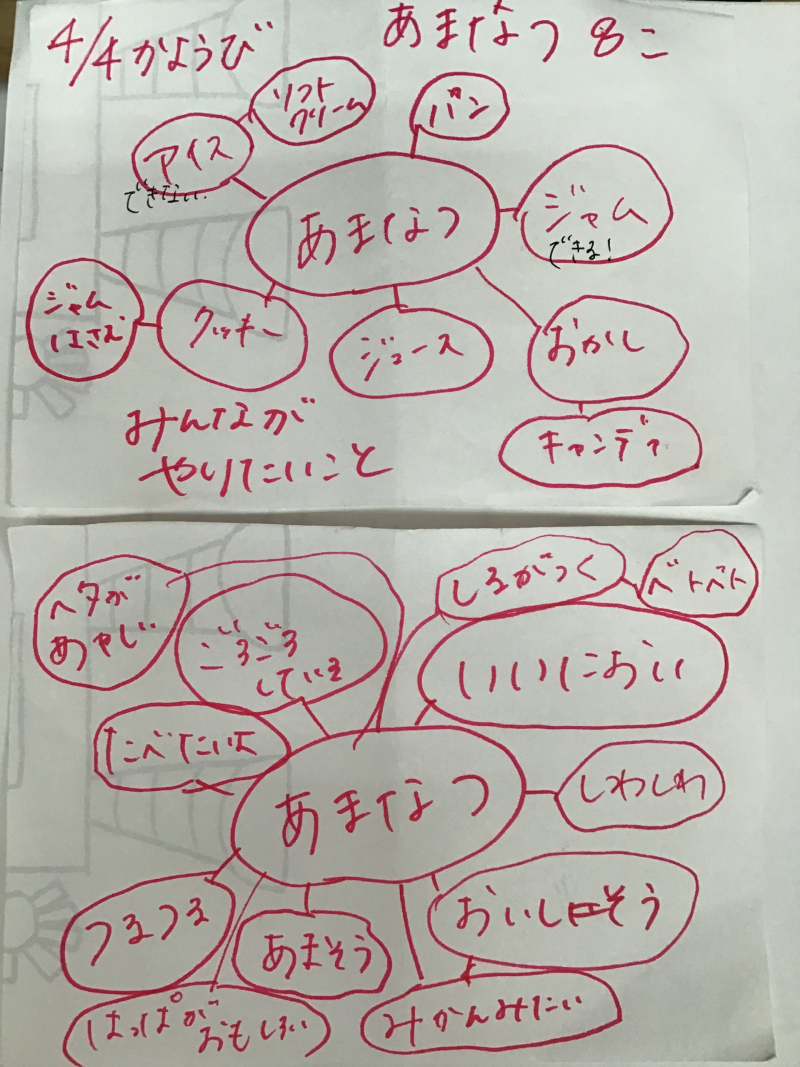 4/4かようび
あまなつ 8こ
ソフト
クリーム
パン
アイス
できない
ジャム
できる!
あまなつ
ジャム
はさむ
クッキー
ジュース
おかし
キャンディ
みんなが
やりたいこと
ヘタが
あやしい
ごろごろ
している
しるがつく
ベトベト
いいにおい
たべたいな
あまなつ
しわしわ
つるつる
あまそう
おいしそう
はっぱが
おもしろい
みかんみたい